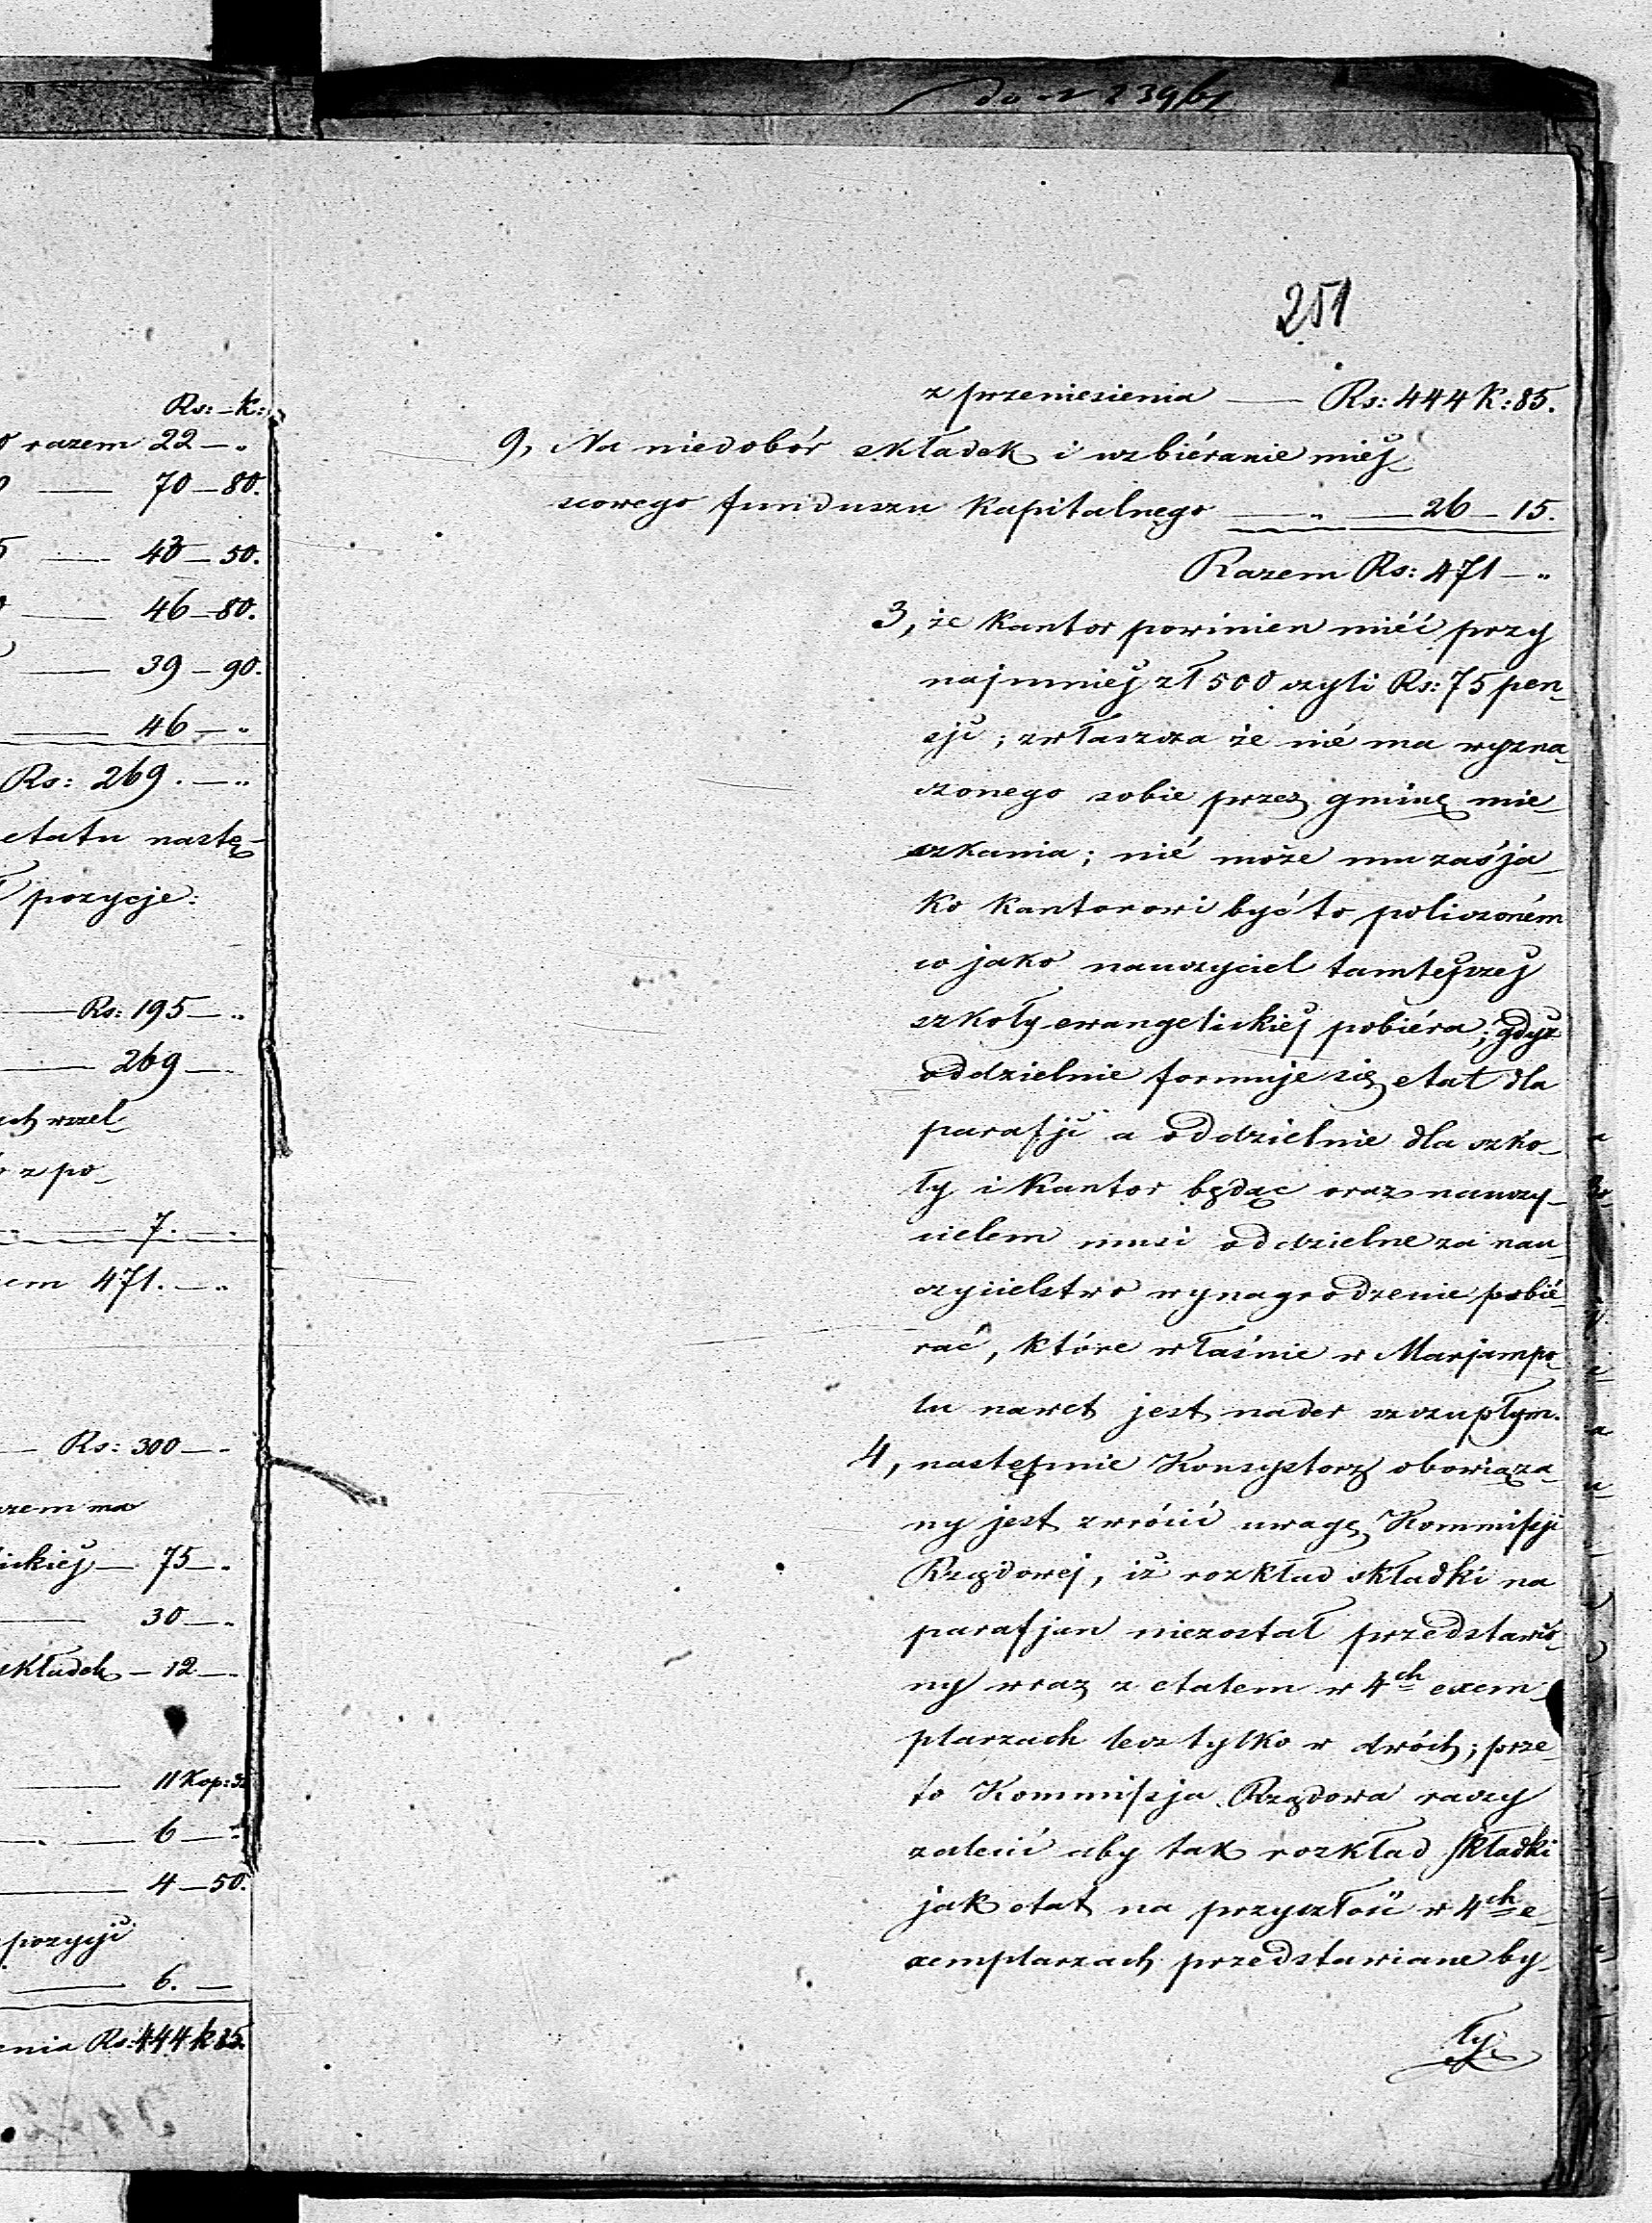 do N 2396
251
Rs: – k:
razem 22 – „
70 – 80.
48 – 50.
46 – 80.
39 – 90.
46 – „
Rs: 269. – „
etatu nastę-
pozycje:
Rs: 195 – „
269 –
wzel-
z po-
7. –
471. – „
Rs: 300 – „
75 – „
30 – „
składek – 12 – „
11 Kop: 3
6 – „
4 – 50.
pozycji
6. –
Rs: 444 k 85.
z przeniesienia — Rs: 444 K: 85.
9, Na niedobór składek i wzbiéranie miéj-
scowego funduszu kapitalnego — „ — 26 – 15.
Razem Rs: 471 – „
3, że Kantor powinien miéć przy
najmniéj zł 500 czyli Rs: 75 pen-
sji; zwłaszcza że nié ma wyzna-
czonego sobie przez gminę mie-
szkania; nié może mu zaś ja-
ko kantorowi być to policzoném
co jako nauczyciel tamtéjszéj
szkoły ewangelickiéj pobiéra; gdyż
oddzielnie formuje się etat dla
parafji a oddzielnie dla szko-
ły i Kantor będąc oraz nauczy-
cielem musi oddzielne za nau-
czycielstwo wynagrodzenie pobié-
rać, które właśnie w Marjampo-
lu nawet jest nader szczupłym.
4, następnie Konsystorz obowiąza-
ny jest zwrócić uwagę Kommissji
Rządowej, iż rozkład składki na
parafjan niezostał przedstawio-
ny wraz z etatem w 4ch exem-
plarzach lecz tylko w dwóch; prze-
to Kommissja Rządowa raczy
zalecić aby tak rozkład składki
jak etat na przyszłość w 4ch e-
xemplarzach przedstawiane by-
ły